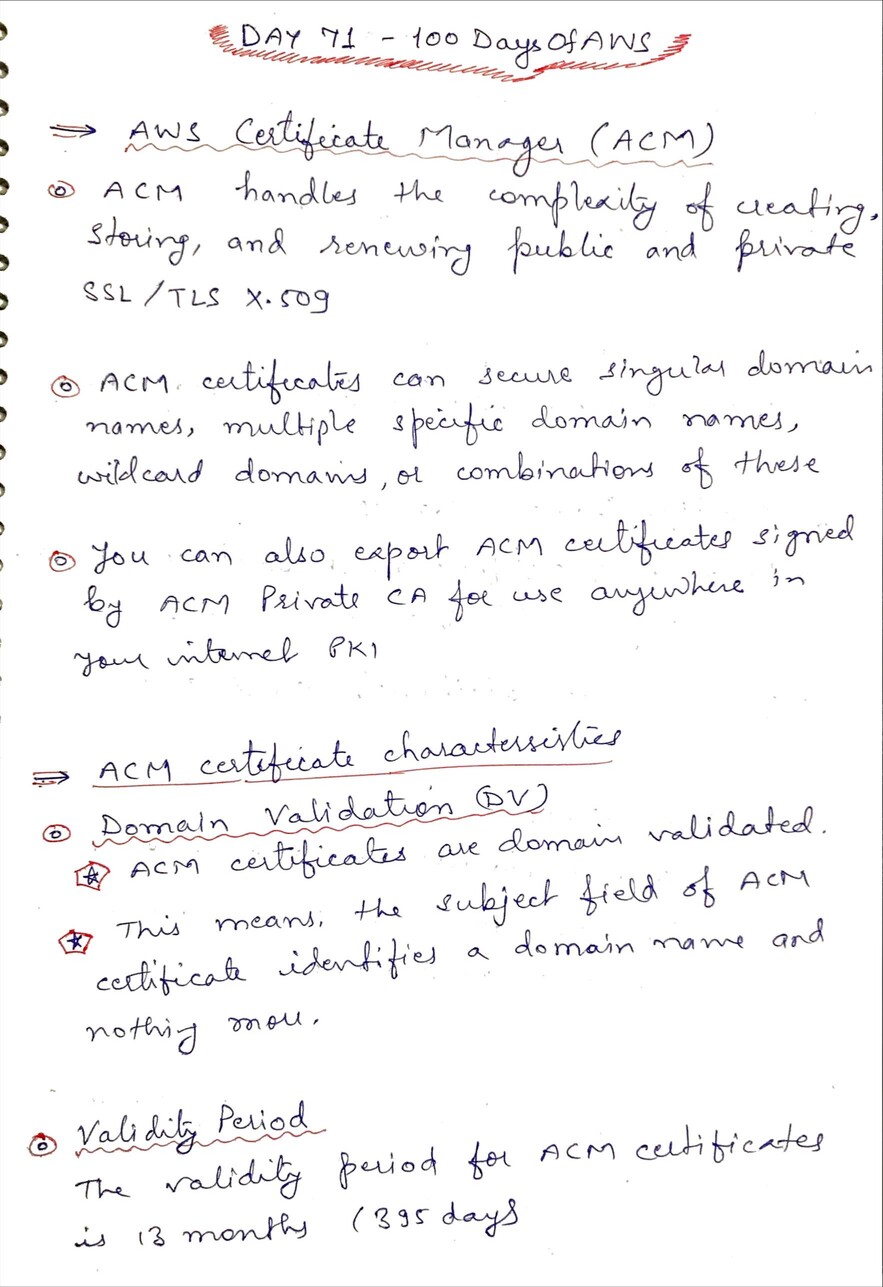 DAY 71 - 100 Days Of AWS
⇒ AWS Certificate Manager (ACM)
ACM handles the complexity of creating,
storing, and renewing public and private
SSL/TLS X.509
ACM certificates can secure singular domain
names, multiple specific domain names,
wildcard domains, or combinations of these
You can also export ACM certificates signed
by ACM Private CA for use anywhere in
your internel PKI
⇒ ACM certificate characterssistics
Domain Validation (DV)
ACM certificates are domain validated.
This means, the subject field of ACM
certificate identifies a domain name and
nothing more.
Validity Period
The validity period for ACM certificates
is 13 months (395 days